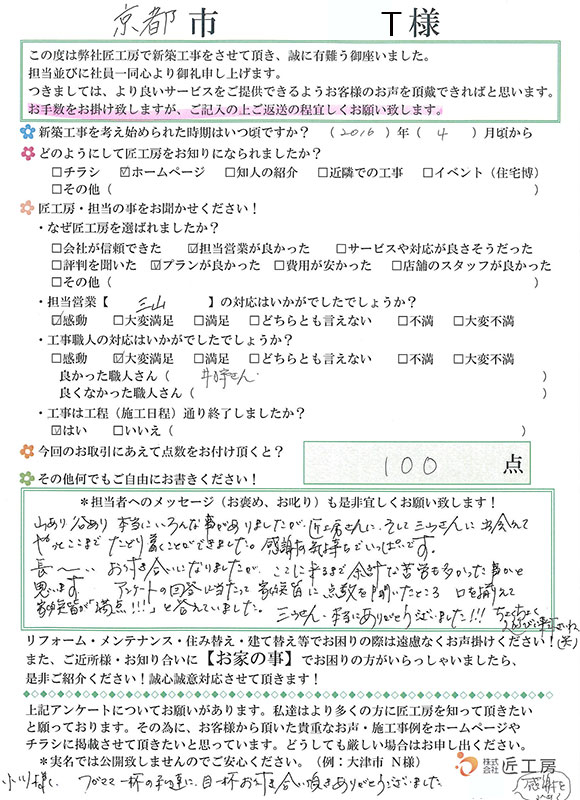 京都市 T様
この度は弊社匠工房で新築工事をさせて頂き、誠に有難う御座いました。
担当並びに社員一同心より御礼申し上げます。
つきましては、より良いサービスをご提供できるようお客様のお声を頂戴できればと思います。
お手数をお掛け致しますが、ご記入の上ご返送の程宜しくお願い致します。
新築工事を考え始められた時期はいつ頃ですか？ （2016）年（4）月頃から
どのようにして匠工房をお知りになられましたか？
□チラシ ☑ホームページ □知人の紹介 □近隣での工事 □イベント（住宅博）
□その他（
匠工房・担当の事をお聞かせください！
・なぜ匠工房を選ばれましたか？
□会社が信頼できた ☑担当営業が良かった □サービスや対応が良さそうだった
□評判を聞いた ☑プランが良かった □費用が安かった □店舗のスタッフが良かった
□その他（
・担当営業【 三山 】の対応はいかがでしたでしょうか？
☑感動 □大変満足 □満足 □どちらとも言えない □不満 □大変不満
・工事職人の対応はいかがでしたでしょうか？
□感動 ☑大変満足 □満足 □どちらとも言えない □不満 □大変不満
良かった職人さん（ さん. ）
良くなかった職人さん（ ）
・工事は工程（施工日程）通り終了しましたか？
☑はい □いいえ（ ）
今回のお取引にあえて点数をお付け頂くと？ 100 点
その他何でもご自由にお書きください！
＊担当者へのメッセージ（お褒め、お叱り）も是非宜しくお願い致します！
山あり谷あり 本当にいろんな事がありましたが、匠工房さんに、そして三山さんに出会えて
やっとここまでたどり着くことができました。感謝の気持ちでいっぱいです。
長〜い お付き合いになりましたが、ここに来るまで余計な苦労も多かった事かと
思います。 アンケートの回答に当たって家族皆に点数を聞いたところ 口を揃えて
家族皆が「満点！！！」と答えていました。三山さん、本当にありがとうございました!!! ちょくちょく
遊びに来て下さいね
（笑）
リフォーム・メンテナンス・住み替え・建て替え等でお困りの際は遠慮なくお声掛けください！
また、ご近所様・お知り合いに【お家の事】でお困りの方がいらっしゃいましたら、
是非ご紹介ください！誠心誠意対応させて頂きます！
上記アンケートについてお願いがあります。私達はより多くの方に匠工房を知って頂きたい
と願っております。その為に、お客様から頂いた貴重なお声・施工事例をホームページや
チラシに掲載させて頂きたいと思っています。どうしても厳しい場合はお申し出ください。
＊実名では公開致しませんのでご安心ください。（例：大津市 N様） 株式会社 匠工房
小川様、 一杯の 目一杯お付き合い頂きありがとうございました